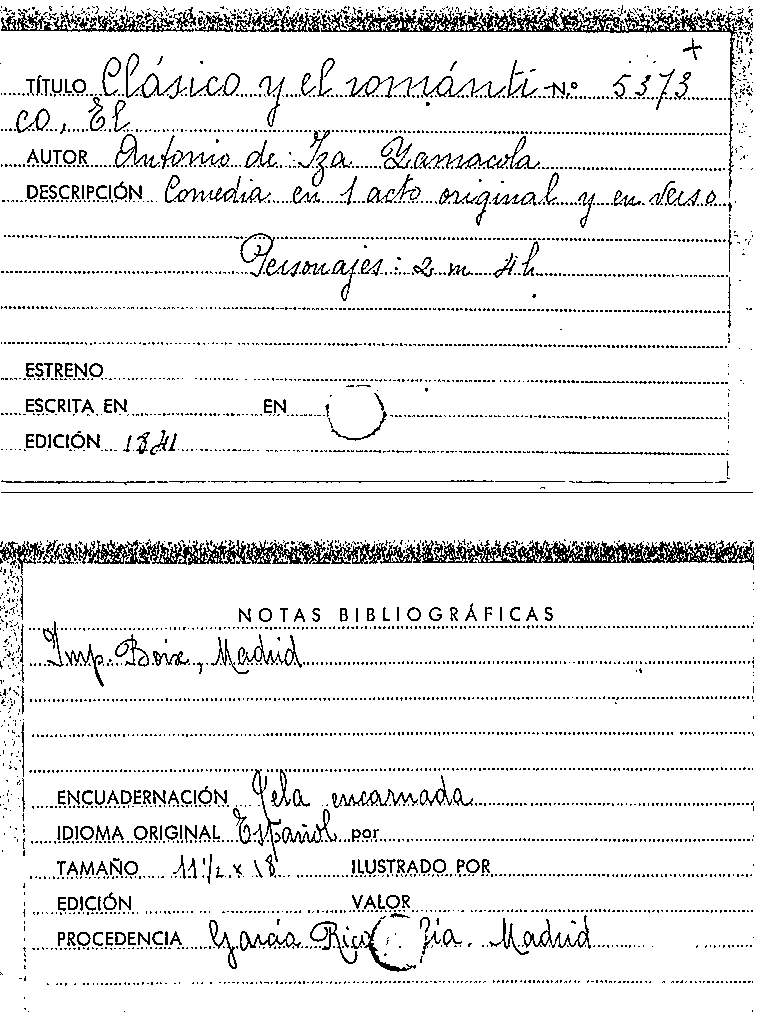 +
TÍTULO Clásico y el románti- N.º 5373
co, El
AUTOR Antonio de Iza Zamacola
DESCRIPCIÓN Comedia en 1 acto original y en verso
Personajes: 2 m 4 h
ESTRENO
ESCRITA EN EN
EDICIÓN 1841
NOTAS BIBLIOGRÁFICAS
Imp. Boix, Madrid
ENCUADERNACIÓN Tela encarnada
IDIOMA ORIGINAL Español por
TAMAÑO 11 1/2 x 18 ILUSTRADO POR
EDICIÓN VALOR
PROCEDENCIA García Rico Madrid